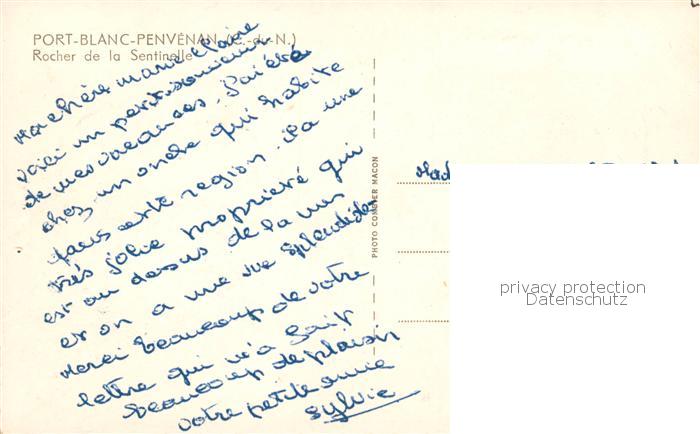 PORT-BLANC-PENVÉNAN (C.-du-N.)
Rocher de la Sentinelle
Ma chère Marie Claire
voici un petit souvenir
de mes vacances. J'ai été
chez un oncle qui habite
dans cette region. Sa une
très jolie propriété qui
est au dessus de la mer
et on a une vue splendide
Merci beaucoup de votre
lettre qui m'a fait
beaucoup de plaisir
votre petite amie
Sylvie
PHOTO COMBIER MACON
privacy protection
Datenschutz